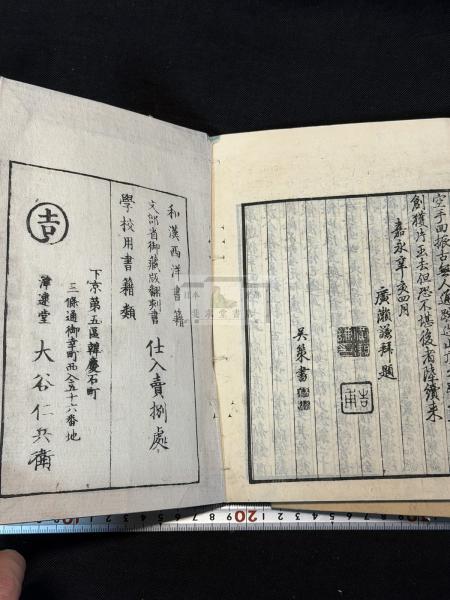 空手回振古無人
創獲片玉去但恐不愜後者陸續來
嘉永辛亥四月
廣瀨謙拜題
吳策書
吉甫
和漢西洋書籍
文部省御藏版翻刻書
學校用書籍類
仕入賣捌處
吉
下京第五區韓慶石町
三條通御幸町西入五十六番地
津逮堂 大谷仁兵衛